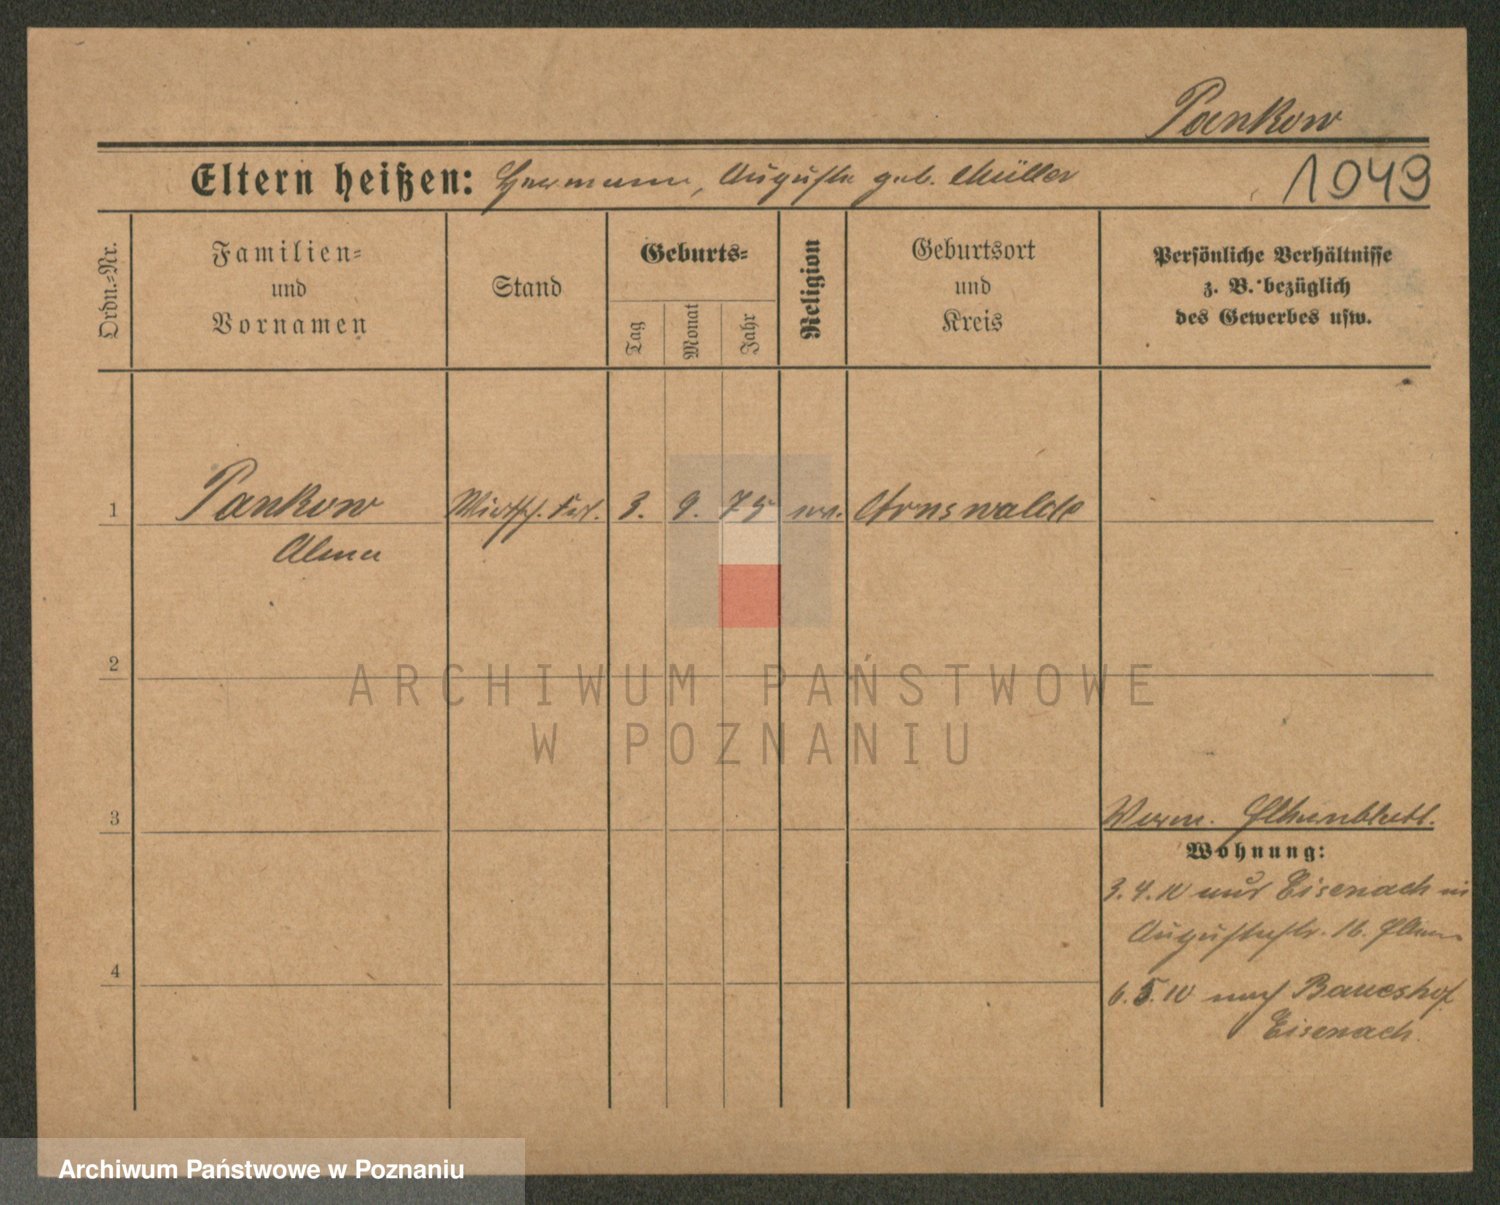 Pankow
Eltern heißen: Hermann, Auguste geb. Müller
1049
Ordn.-Nr.
Familien-
und
Vornamen
Stand
Geburts-
Tag
Monat
Jahr
Religion
Geburtsort
und
Kreis
Persönliche Verhältnisse
z. B. bezüglich
des Gewerbes usw.
1 Pankow Wirtsch. Frl. 3. 9. 75 ev. Arnswalde
Alma
2
ARCHIWUM PAŃSTWOWE
W POZNANIU
3
Wohnung:
3. 4. 10 Eisenach
Augustastr. 16.
4
6. 5. 10 nach
Eisenach
Archiwum Państwowe w Poznaniu